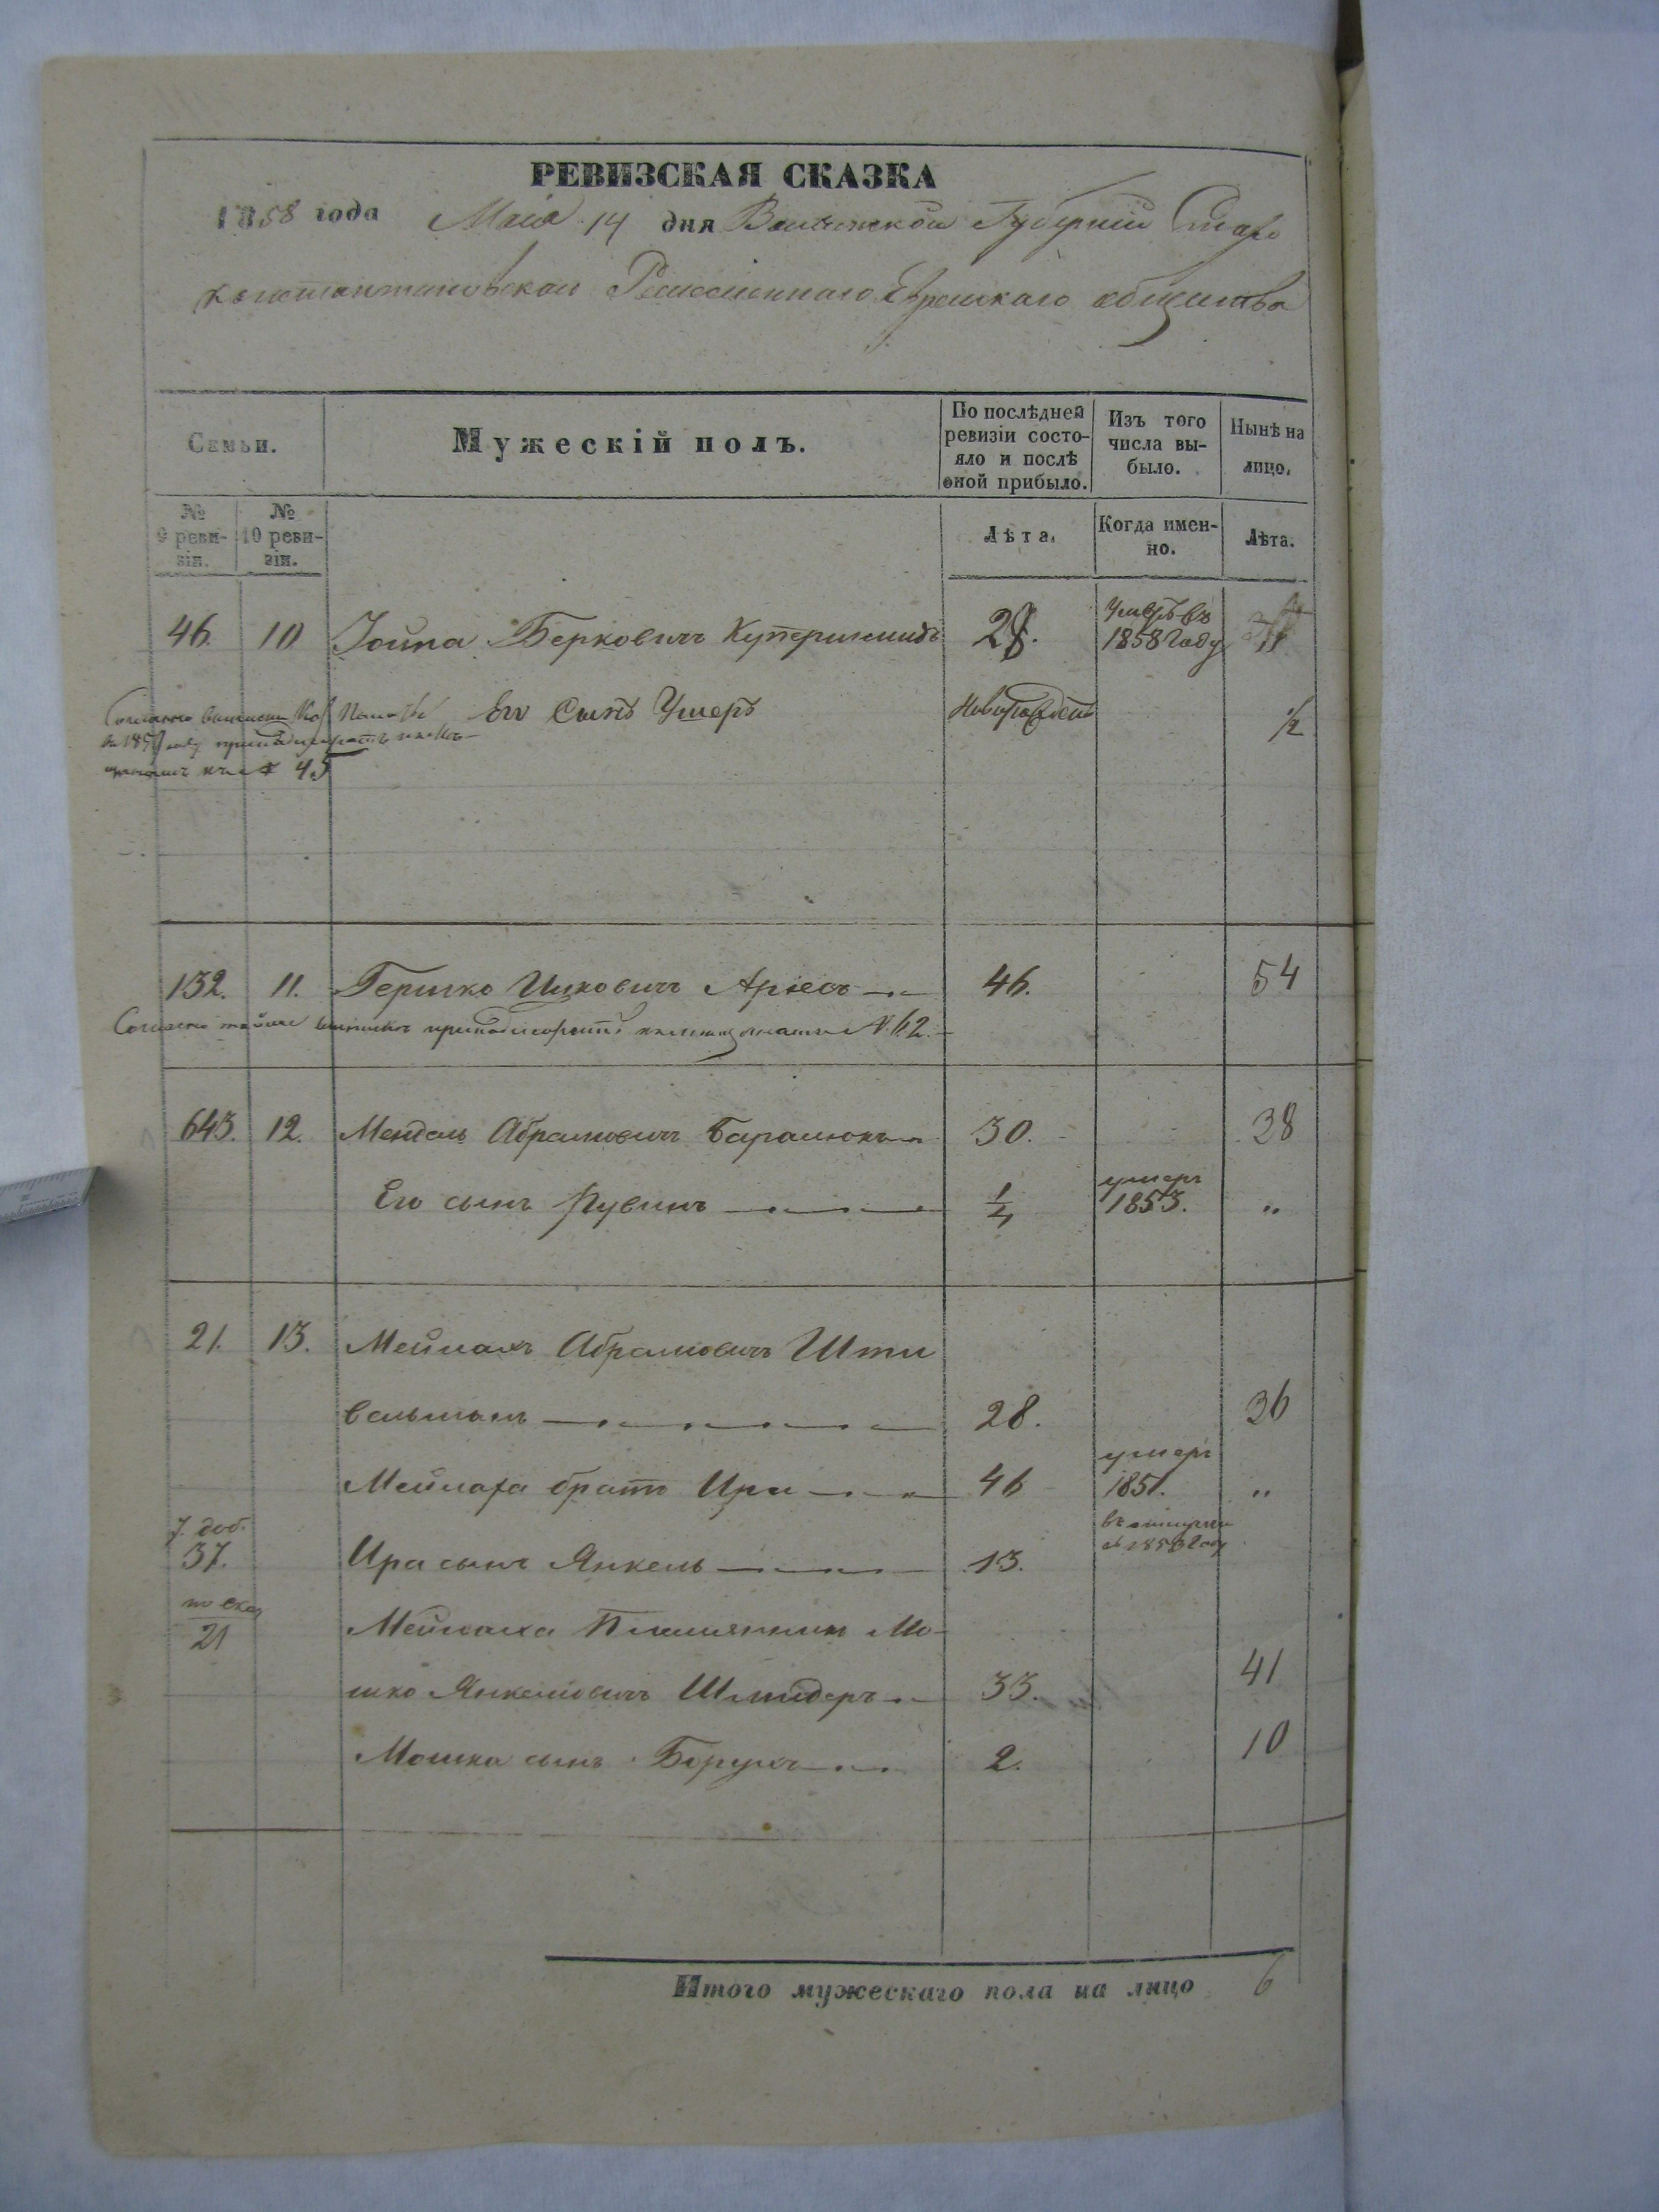 РЕВИЗСКАЯ СКАЗКА
1858 года Маія 14 дня Волынской Губерніи Старо
константиновскаго Ремесленнаго Еврейскаго общества
Семьи.
Мужескій полъ.
По послѣдней ревизіи состояло и послѣ оной прибыло.
Изъ того числа выбыло.
Нынѣ на лицо.
№ 9 реви-зіи.
№ 10 реви-зіи.
Лѣта.
Когда имен-но.
Лѣта.
46. 10 Іойна Берковичъ Купершмидъ 28. Умеръ въ 1858 году
Его Сынъ Ушеръ Новорожденъ 1/2
45
132. 11. Гершко Ицковичъ 46. 54
№ 62.
643. 12. Мендель Абрамовичъ 30. 38
Его сынъ Рувинъ 1/4 умеръ 1853. "
21. 13. Мейлахъ Абрамовичъ Шти
вельманъ 28. 36
Мейлаха братъ Ира 46 умеръ 1851. "
37. Ира сынъ Янкель 13.
21 Мейлаха Племянникъ Мо-
шко Янкелювичъ Шнидеръ 33. 41
Мошка сынъ Борухъ 2. 10
Итого мужескаго пола на лицо 6